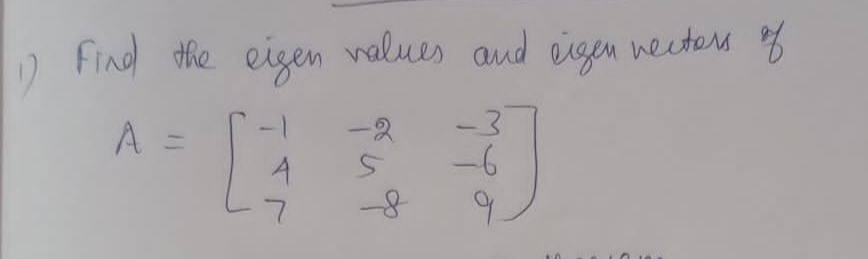 1) Find the eigen values and eigen vectors of
A = [ -1 -2 -3
4 5 -6
7 -8 9 ]